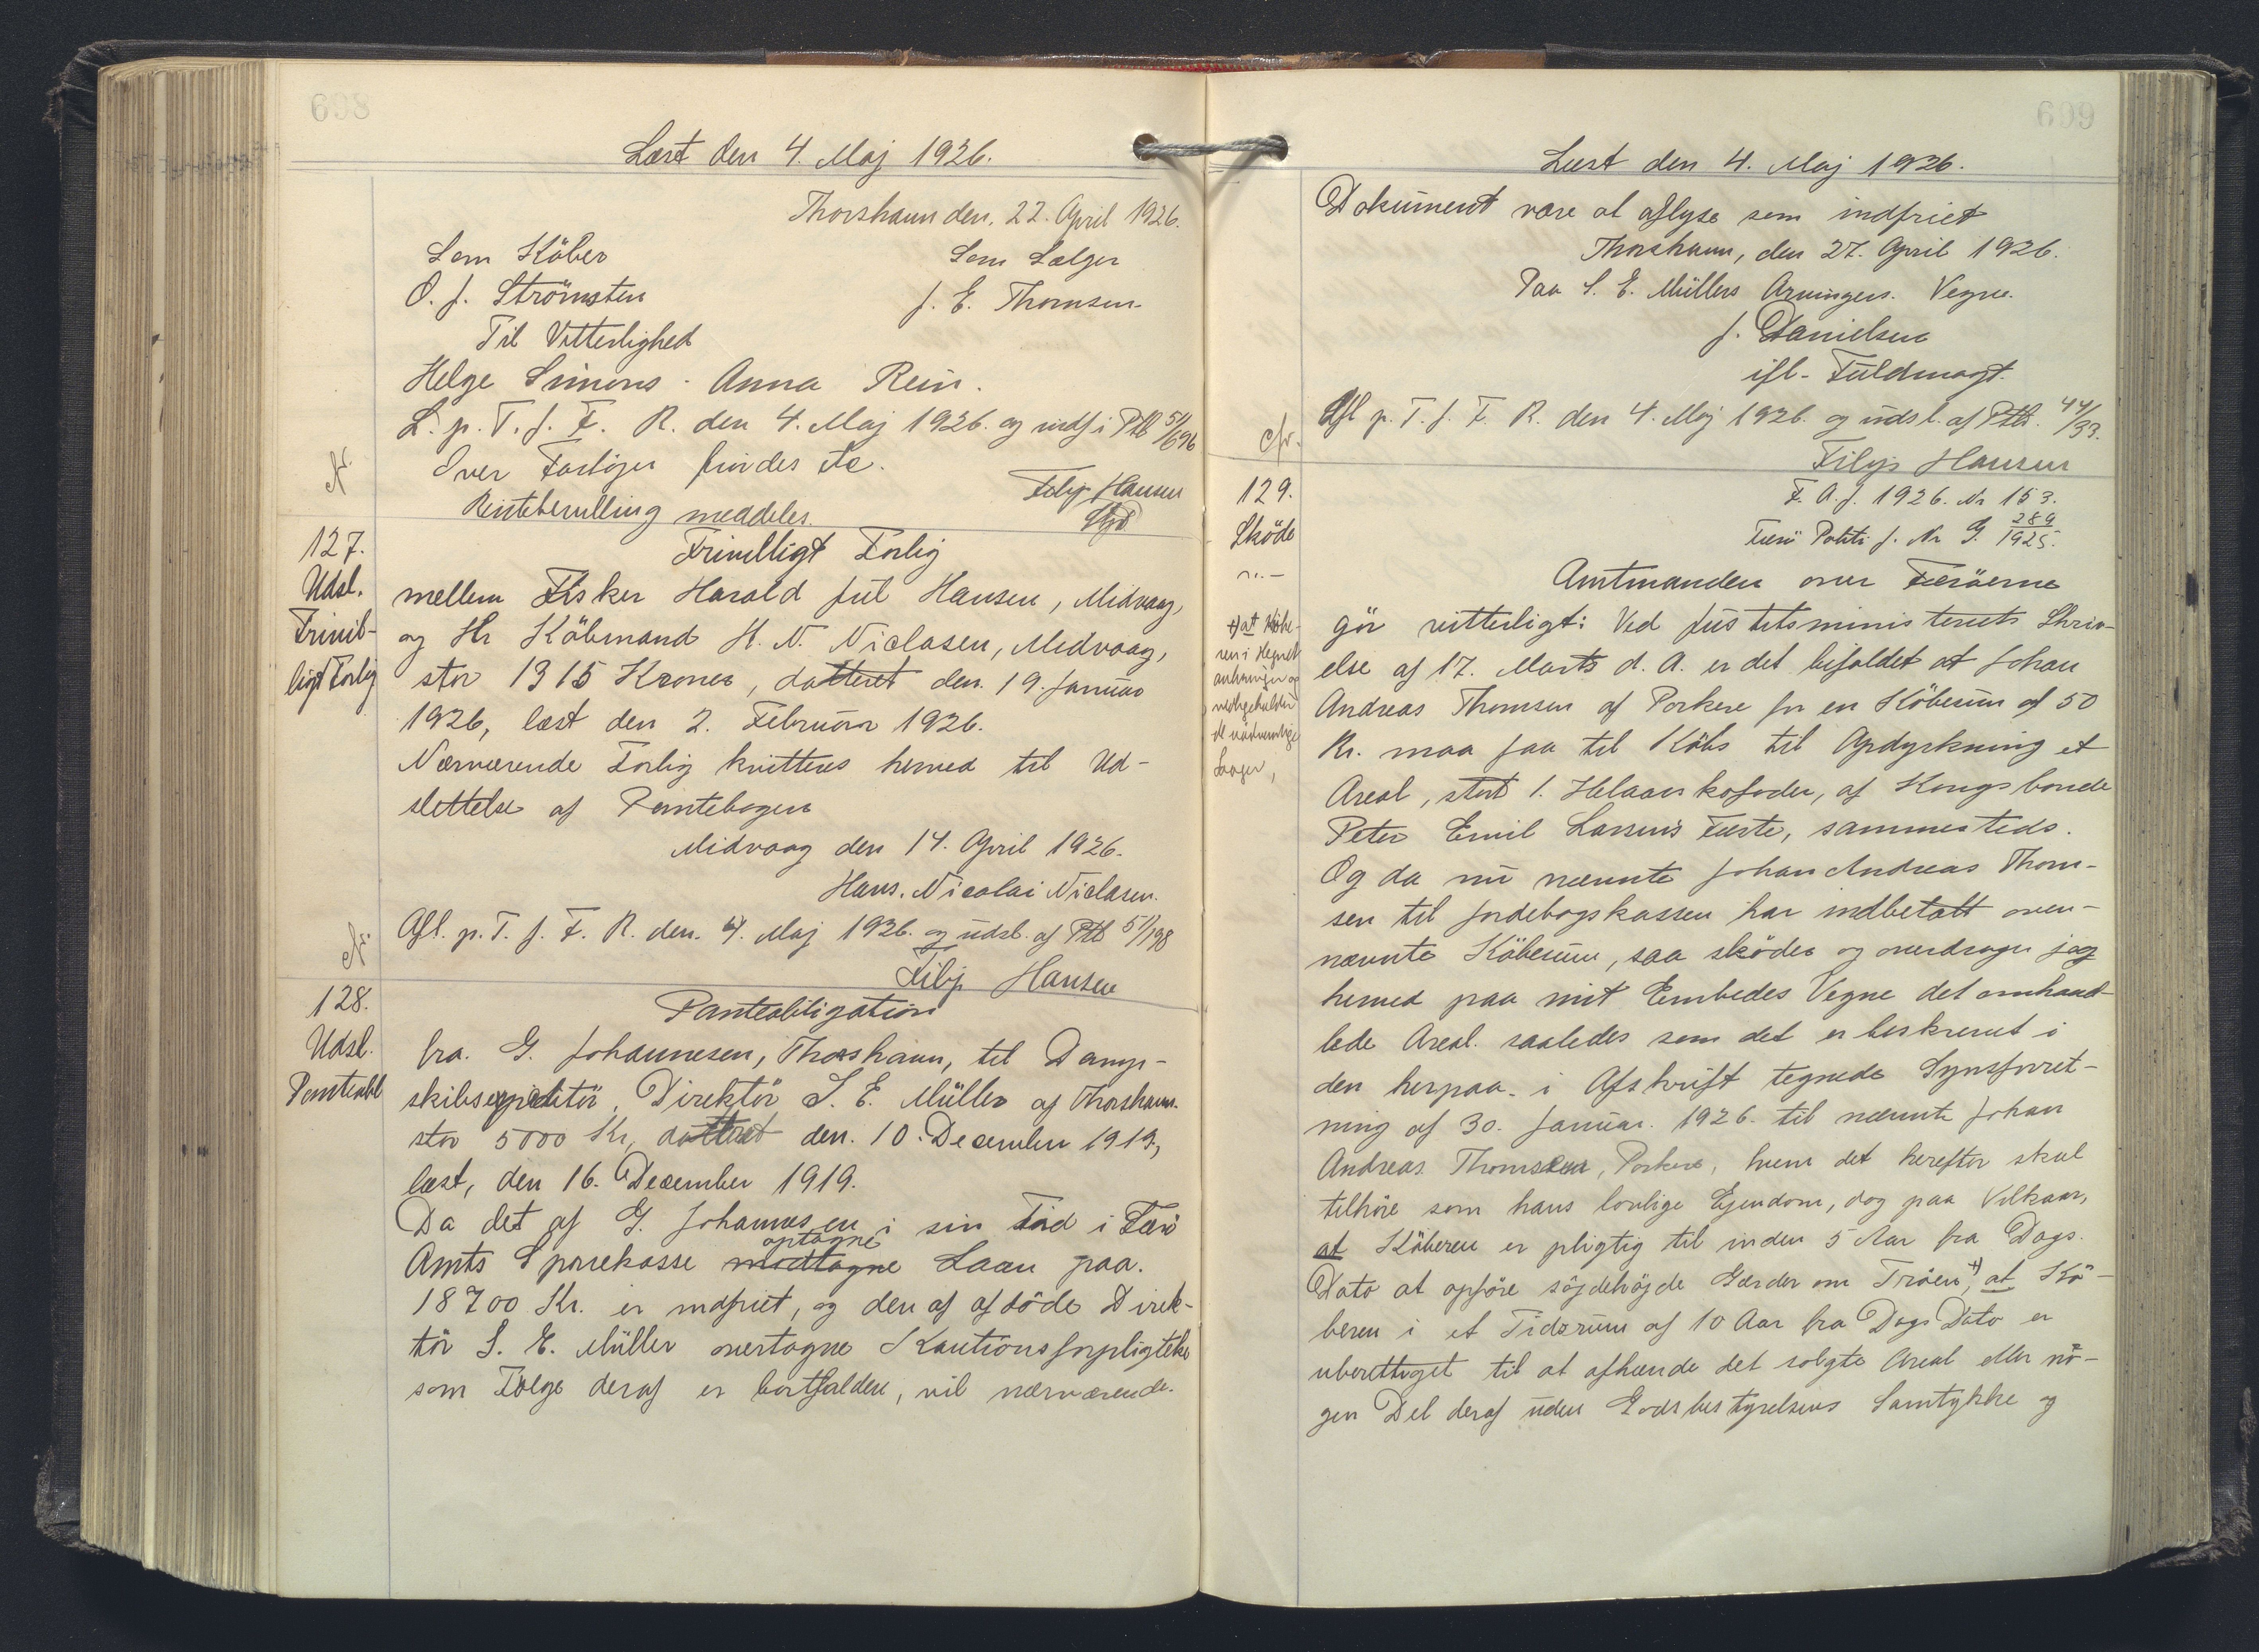 698
Læst den 4. Maj 1926.
Thorshavn den. 22. April 1926.
Som Köber
Som Sælger
O. J. Strömsten
J. E. Thomsen
Til Vitterlighed
Helge Simons - Anna Rein.
L. p. T. f. F. R. den 4. Maj 1926. og indf i Ptb 51/696
Over Fastöjer findes etc.
Renteberulling meddeles.
Filip Hansen
127.
Udsl.
Frivil-
ligt Forlig
Frivilligt Forlig
mellem Fisker Harald Jul Hansen, Midvaag,
og Hr Köbmand H. N. Niclasen, Midvaag,
stor 1315 Kroner, datteret den. 19. Januar
1926, læst den 2. Februar 1926.
Nærværende Forlig kvitteres herved til Ud-
slettelse af Pantebogen
Midvaag den 14. April 1926.
Hans. Nicolai Niclasen.
Afl. p. T. f. F. R. den. 4. Maj 1926. og udsl. af Ptb 51/198
Filip Hansen
128.
Udsl.
Panteobl
Panteobligation
fra. G. Johannesen, Thorshavn, til Damp-
skibsexpeditör, Direktör S. E. Müller af Thorshavn.
stor 5000 Kr, datteret den. 10. December 1919,
læst, den 16. December 1919.
Da det af G. Johannesen i sin Tid i Færö
optagne
Amts Sparekasse modtagne Laan paa.
18700 Kr. er indfriet, og den af afdöde Direk-
tör S. E. Müller overtagne Kautionsforpligtelse
som Fölge deraf er bortfalden, vil nærværende.
699
Læst den 4. Maj 1926.
Dokument være at aflyse som indfriet
Thorshavn, den 27. April 1926.
Paa S. E. Müllers Arvingers. Vegne.
J. Danielsen
ifl. Fuldmagt.
Afl p. T. f. F. R. den 4. Maj 1926. og udsl. af Ptb. 44/33.
Filip Hansen
129.
Sköde
F. A. J. 1926. Nr 153.
Færö Politi J. Nr G. 289/1925.
Amtmanden over Færöerne
gör vitterligt: Ved Justitsministeriets Skriv-
else af 17. Marts d. A. er det bifaldet at Johan
Andreas Thomsen af Porkere for en Köbesum af 50
Kr. maa faa til Köbs til Opdyrkning et
Areal, stort 1. Helaars kofoder, af Kongsbonde
Peter Emil Larsens Fæste, sammesteds.
Og da nu nævnte Johan Andreas Thom-
sen til Jordebogskassen har indbetalt oven-
nævnte Köbesum, saa sköder og overdrager jeg
herved paa mit Embedes Vegne det omhand-
lede Areal. saaledes som det er beskrevet i
den herpaa. i Afskrift tegnede Synsforret-
ning af 30. Januar. 1926. til nævnte Johan
Andreas Thomsen, Porkere, hvem det herefter skal
tilhöre som hans lovlige Ejendom, dog paa Vilkaar,
at Köberen er pligtig til inden 5 Aar fra Dags.
Dato at opföre söjdehöjde Gærder om Tröen +), at Kö-
beren i et Tidsrum af 10 Aar fra Dags Dato er
uberettiget til at afhænde det solgte Areal eller no-
gen Del deraf uden Godsbestyrelsens Samtykke og
+) at Köbe-
ren i Hegnet
anbringer og
vedligeholder
de nödvendige
Laager,